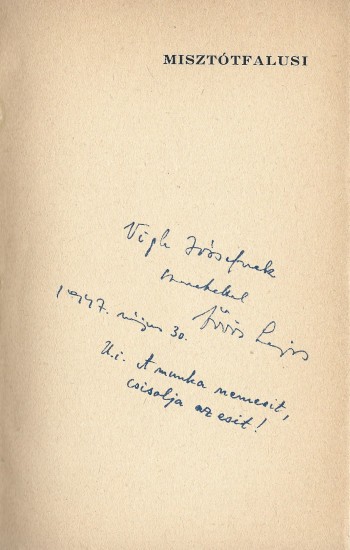 MISZTÓTFALUSI
Vigh Józsefnek
szeretettel
1947. május 30.
Lajos
U.i. A munka nemesit,
csiszolja az eszit!